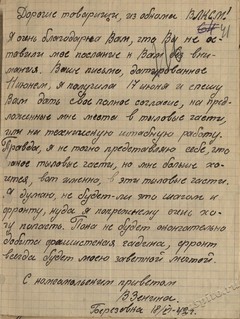 Дорогие товарищи, из обкома ВЛКСМ!
41
Я очень благодарна Вам, что Вы не ос-
тавили мое послание к Вам без вни-
мания. Ваше письмо, датированное
11 июнем, я получила 17 июня и спешу
Вам дать свое полное согласие, на пред-
ложенные мне места в тыловые части,
или на техническую штабную работу.
Правда, я не точно представляю себе, что
такое тыловые части, но мне больше хо-
чется, вот именно, в эти тыловые части.
Я думаю, не будет-ли это шагом к
фронту, куда я попрежнему очень хо-
чу попасть. Пока не будет окончательно
добита фашистская гадина, фронт
всегда будет моею заветной мечтой.
С комсомольским приветом
Березовка 18/VI-43г.